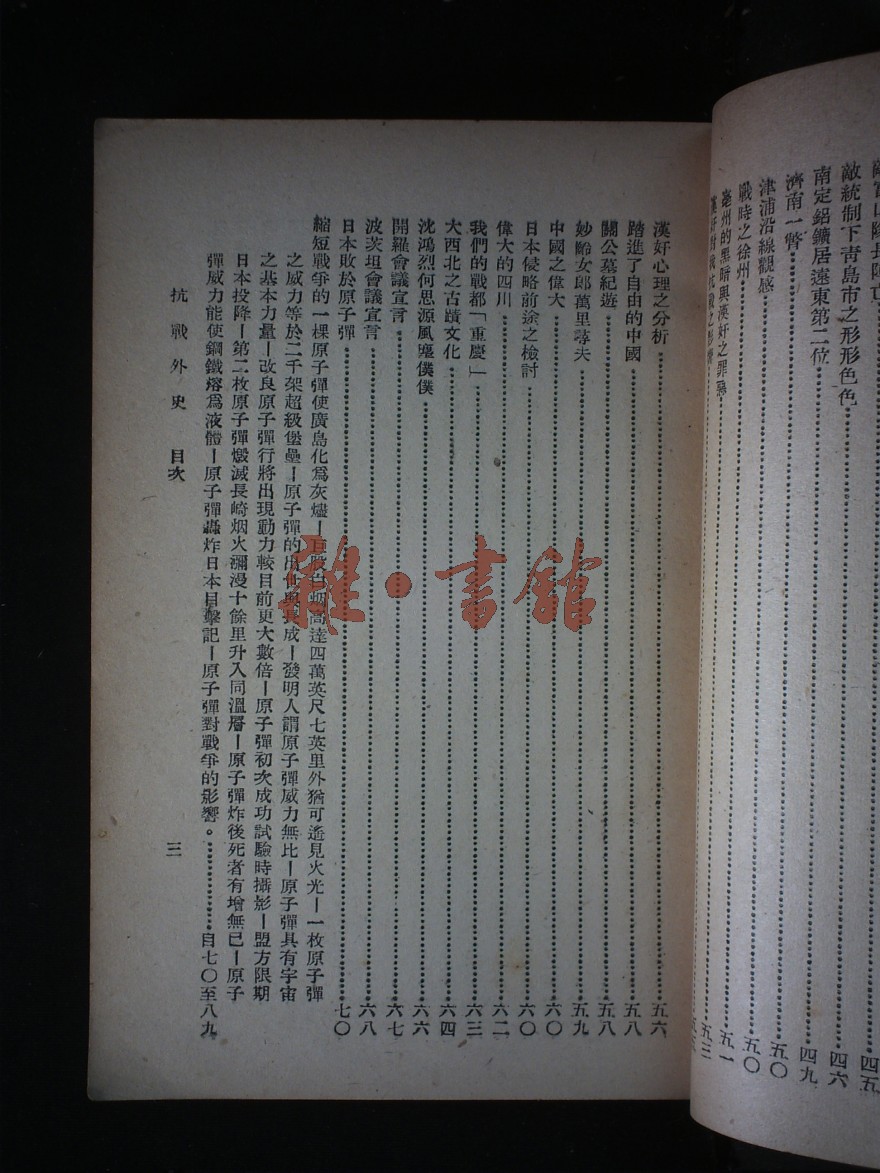 敵統制下靑島市之形形色色…………四六
南定鋁鑛居遠東第二位…………四九
濟南一瞥…………五〇
津浦沿線觀感…………五〇
戰時之徐州…………五一
亳州的黑暗與漢奸之罪惡…………五三
漢奸心理之分析…………五六
踏進了自由的中國…………五八
關公墓紀遊…………五八
妙齡女郞萬里尋夫…………五九
中國之偉大…………六〇
日本侵略前途之檢討…………六〇
偉大的四川…………六二
我們的戰都「重慶」…………六三
大西北之古蹟文化…………六四
沈鴻烈何思源風塵僕僕…………六六
開羅會議宣言…………六七
波茨坦會議宣言…………六八
日本敗於原子彈…………七〇
縮短戰爭的一棵原子彈使廣島化爲灰燼—白烟高達四萬英尺七英里外猶可遙見火光—一枚原子彈
之威力等於二千架超級堡壘—原子彈的出世與長成—發明人謂原子彈威力無比—原子彈具有宇宙
之基本力量—改良原子彈行將出現動力較目前更大數倍—原子彈初次成功試驗時攝影—盟方限期
日本投降—第二枚原子彈燬滅長崎烟火瀰漫十餘里升入同溫層—原子彈炸後死者有增無已—原子
彈威力能使鋼鐵熔爲液體—原子彈轟炸日本目擊記—原子彈對戰爭的影響。…………自七〇至八九
抗戰外史 目次
三
雜·書館